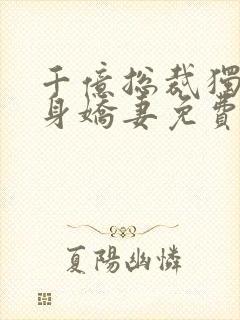 千億總裁獨
身嬌妻免費
夏陽幽憐